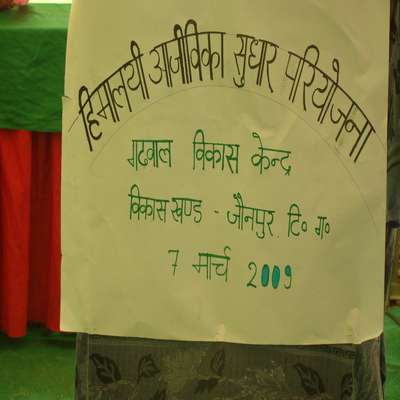 हिमालयी आजीविका सुधार परियोजना
गढवाल विकास केन्द्र
विकास खण्ड - जौनपुर टि० ग०
7 मार्च 2009